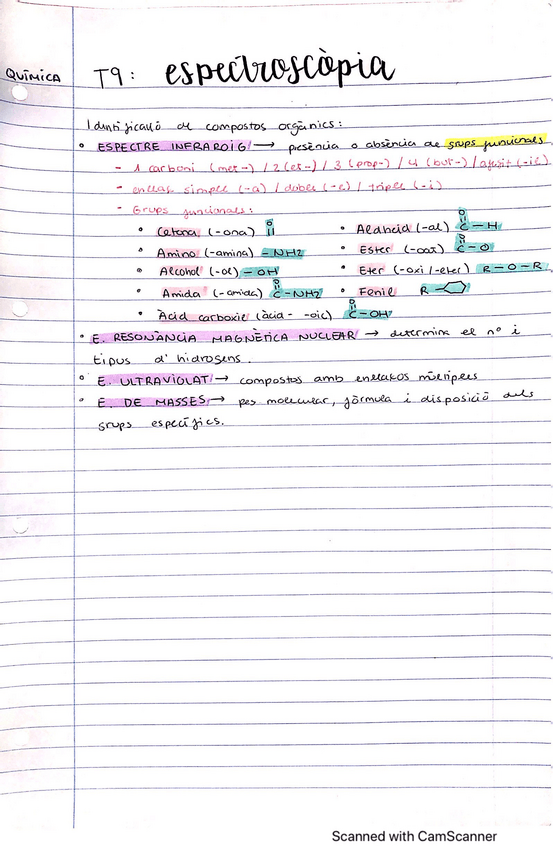 QUÍMICA
T9: espectroscòpia
Identificació de compostos orgànics:
• ESPECTRE INFRAROIG → presència o absència de grups funcionals
- 1 carboni (met-) / 2 (et-) / 3 (prop-) / 4 (but-) / (-il)
- enllaç simple (-a) / doble (-e) / triple (-i)
- Grups funcionals:
• Cetona (-ona) O ||
• Aldheid (-al) O || C-H
• Amino (-amina) -NH2
• Ester (-oat) O || C-O
• Alcohol (-ol) -OH
• Eter (-oxi/-eter) R-O-R
• Amida (-amida) O || C-NH2
• Fenil R-
• Àcid carboxíl (àcid- -oic) O || C-OH
• E. RESONÀNCIA MAGNÈTICA NUCLEAR → determina el nº i
tipus d'hidrogens.
• E. ULTRAVIOLAT → compostos amb enllaços múltiples
• E. DE MASSES → pes molecular, fórmula i disposició dels
grups específics.
Scanned with CamScanner